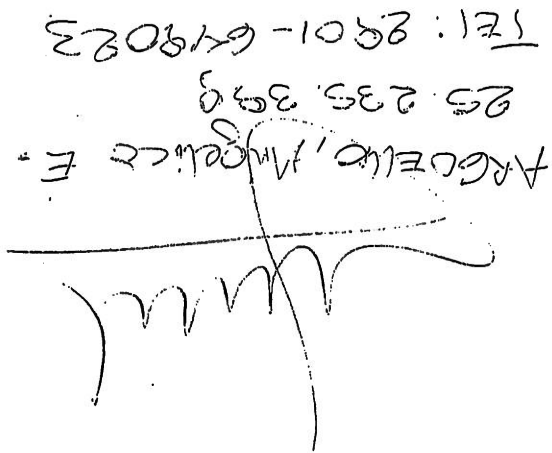 ARGUELLO, Angelica E.
25.235.339
TEl: 2901-649023